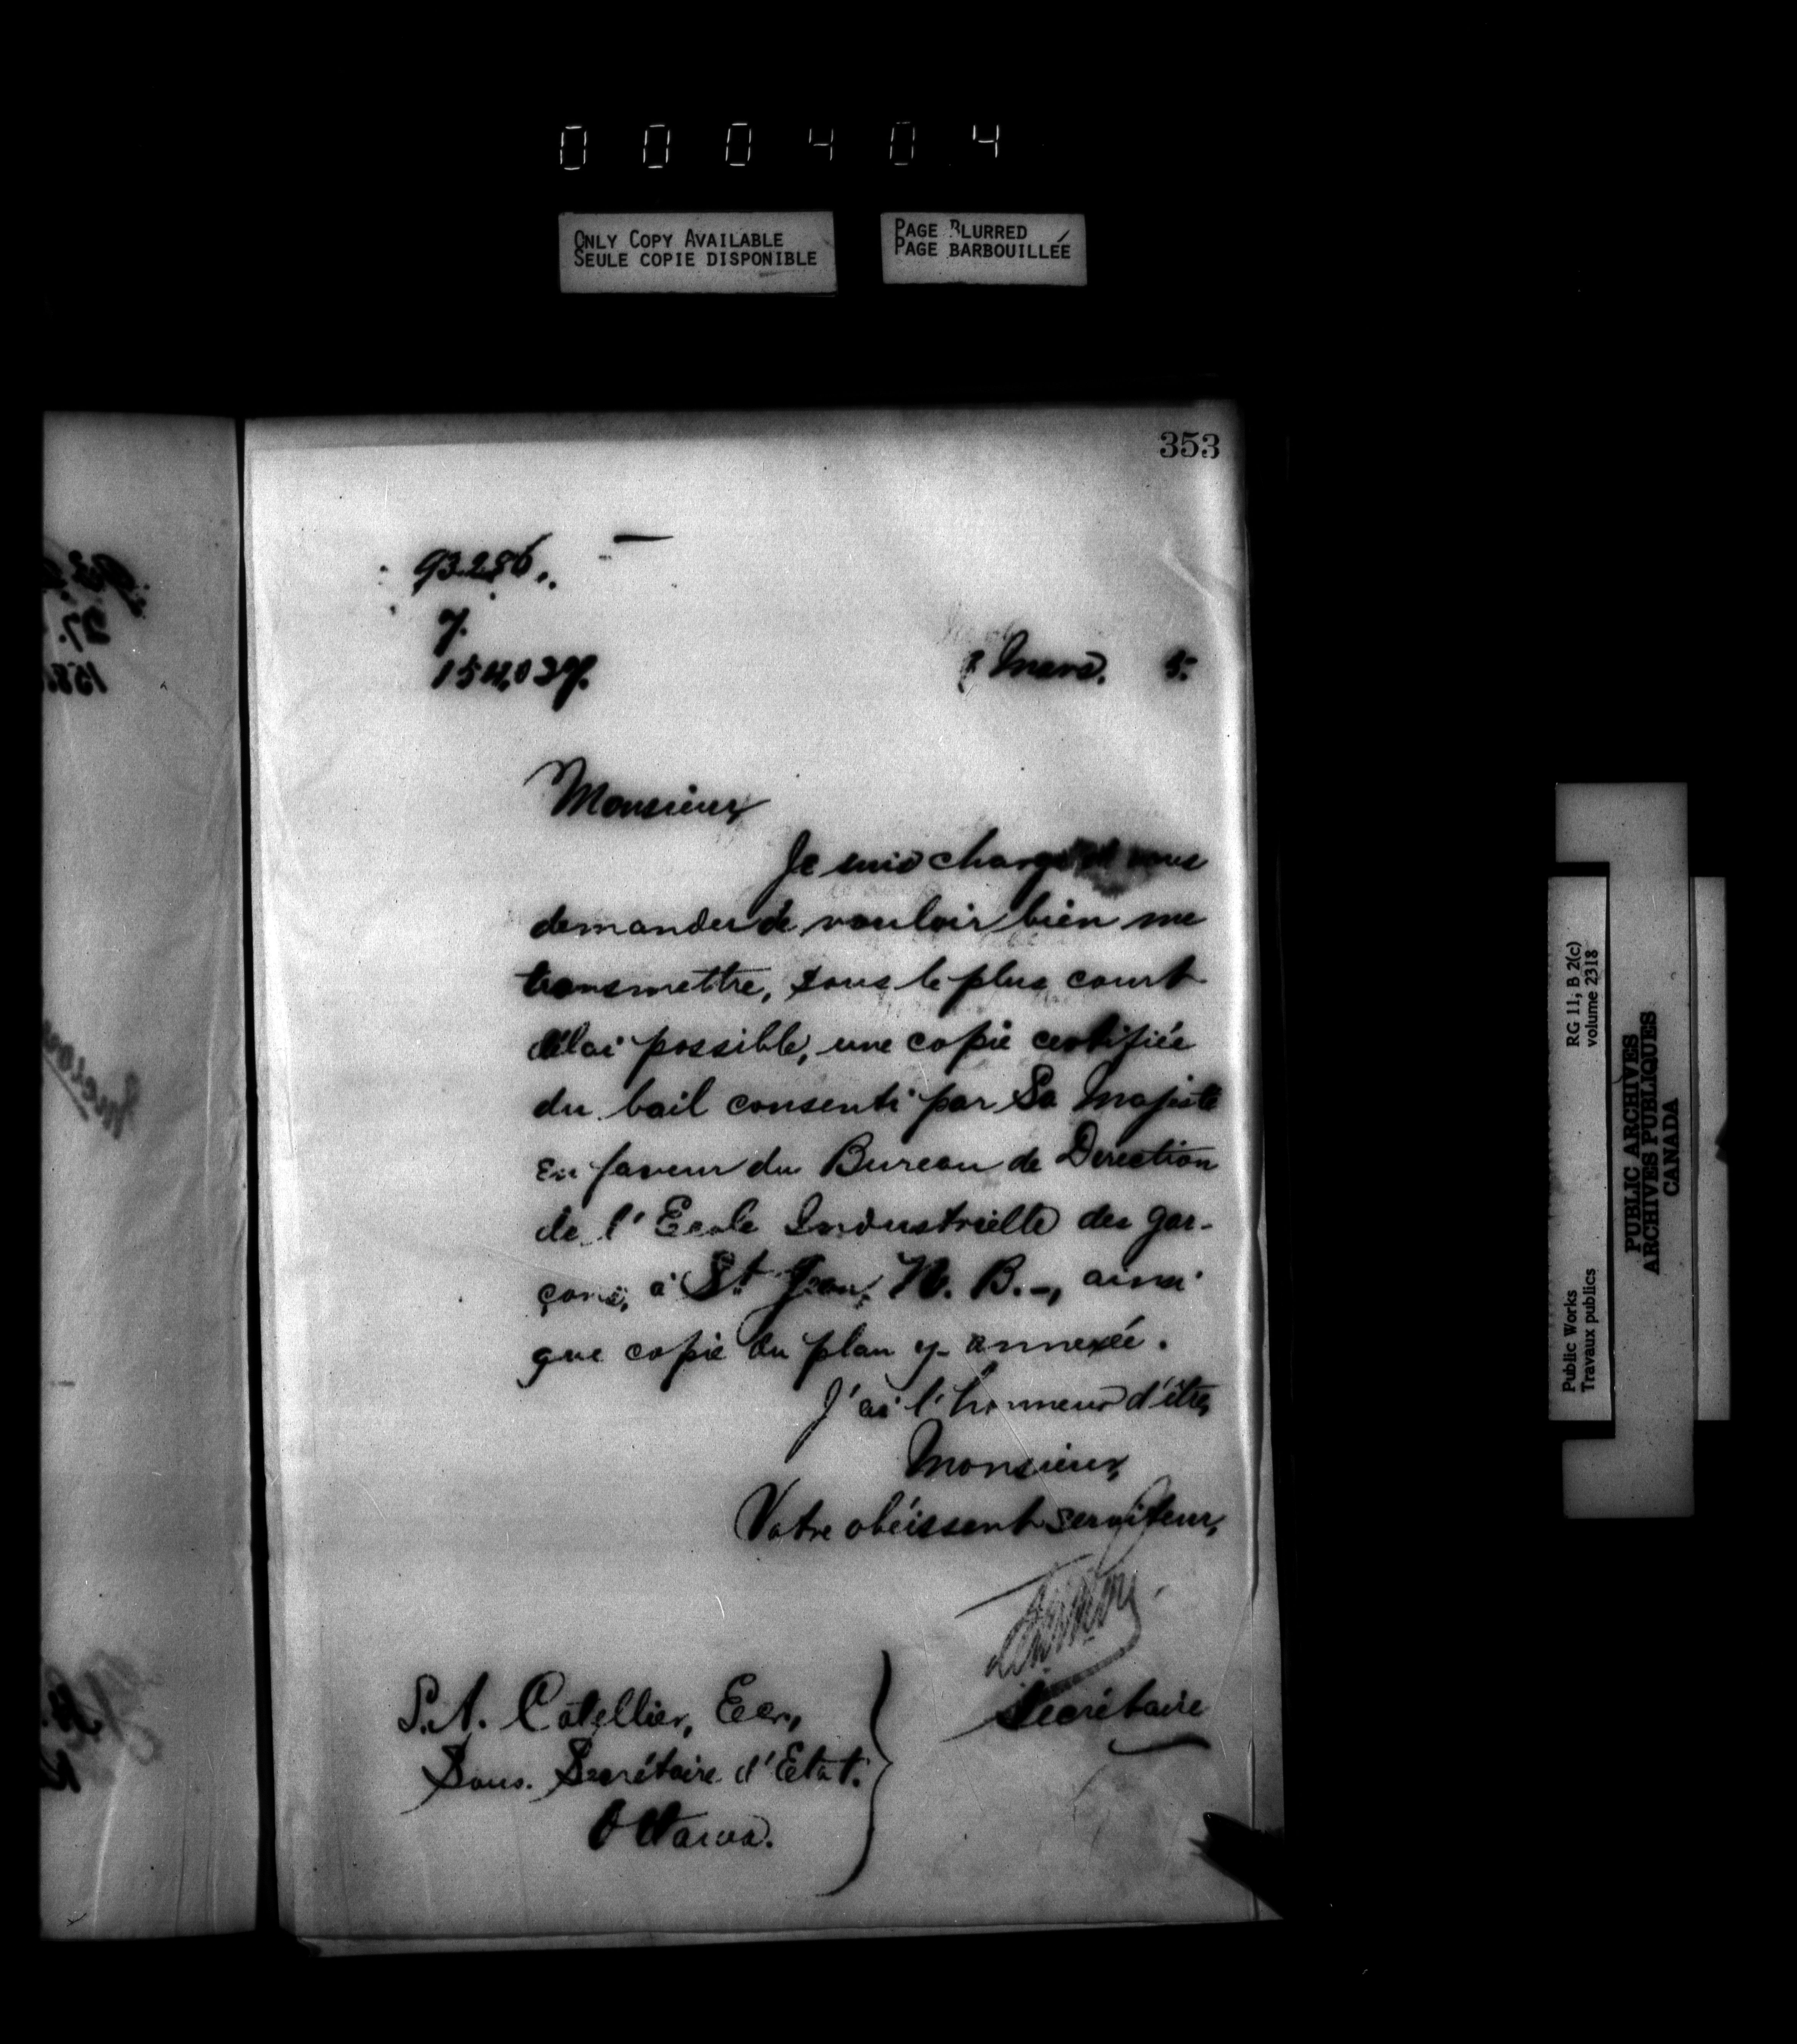 000404
ONLY COPY AVAILABLE
SEULE COPIE DISPONIBLE
PAGE BLURRED
PAGE BARBOUILLÉE
353
93286.
7.
154,037.
Mars. 5.
Monsieur,
Je suis chargé de vous
demander de vouloir bien me
transmettre, sous le plus court
délai possible, une copie certifiée
du bail consenti par Sa Majesté
en faveur du Bureau de Direction
de l'Ecole Industrielle des gar-
çons, à St. Jean, N. B.-, ainsi
que copie du plan y-annexée.
J'ai l'honneur d'être,
Monsieur,
Votre obéissant serviteur,
Secrétaire
Catellier, Ecr,
Sous. Secrétaire d'Etat.
Ottawa.
Public Works
Travaux publics
RG 11, B 2(c)
volume 2318
PUBLIC ARCHIVES
ARCHIVES PUBLIQUES
CANADA